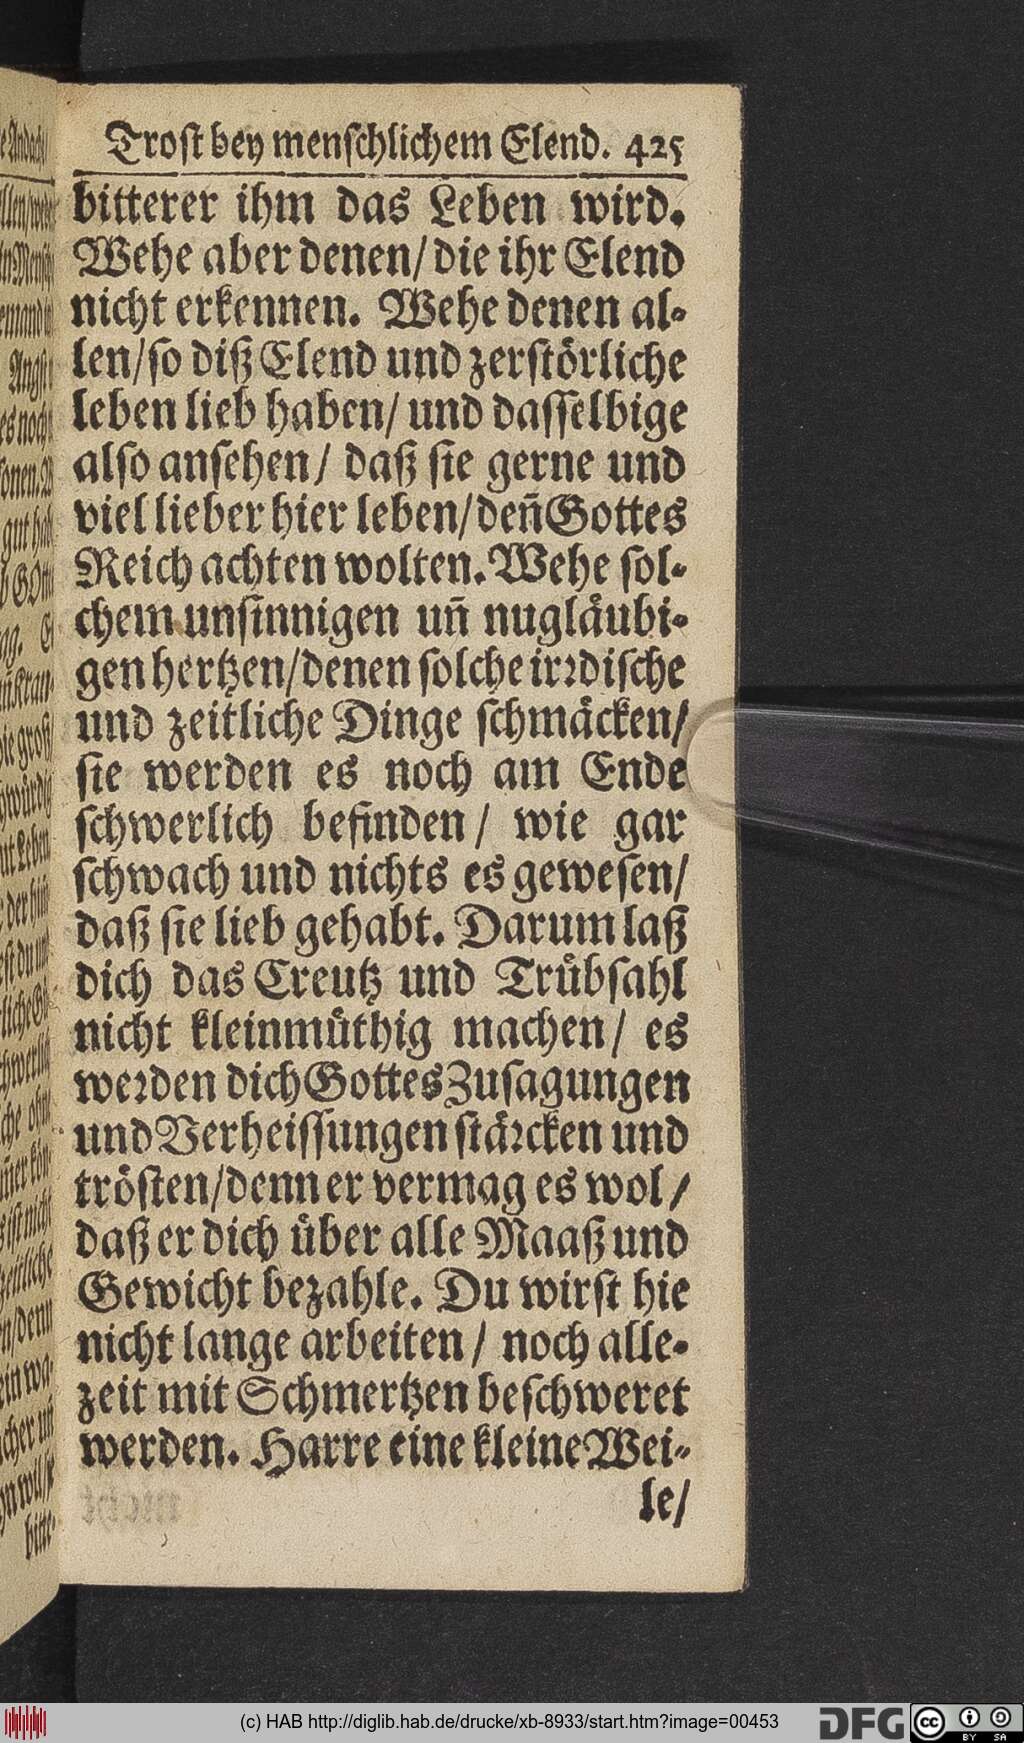 Trost bey menschlichem Elend. 425
bitterer ihm das Leben wird.
Wehe aber denen/ die ihr Elend
nicht erkennen. Wehe denen al-
len/ so diß Elend und zerstörliche
leben lieb haben/ und dasselbige
also ansehen/ daß sie gerne und
viel lieber hier leben/ deñ Gottes
Reich achten wolten. Wehe sol-
chem unsinnigen uñ nugläubi-
gen hertzen/ denen solche irꝛdische
und zeitliche Dinge schmäcken/
sie werden es noch am Ende
schwerlich befinden/ wie gar
schwach und nichts es gewesen/
daß sie lieb gehabt. Darum laß
dich das Creutz und Trübsahl
nicht kleinmüthig machen/ es
weꝛden dich Gottes Zusagungen
und Verheissungen stäꝛcken und
trösten/ denn er vermag es wol/
daß er dich über alle Maaß und
Gewicht bezahle. Du wirst hie
nicht lange arbeiten/ noch alle-
zeit mit Schmertzen beschweret
werden. Harre eine kleine Wei-
le/
bitte-
(c) HAB http://diglib.hab.de/drucke/xb-8933/start.htm?image=00453
DFG
cc
BY
SA